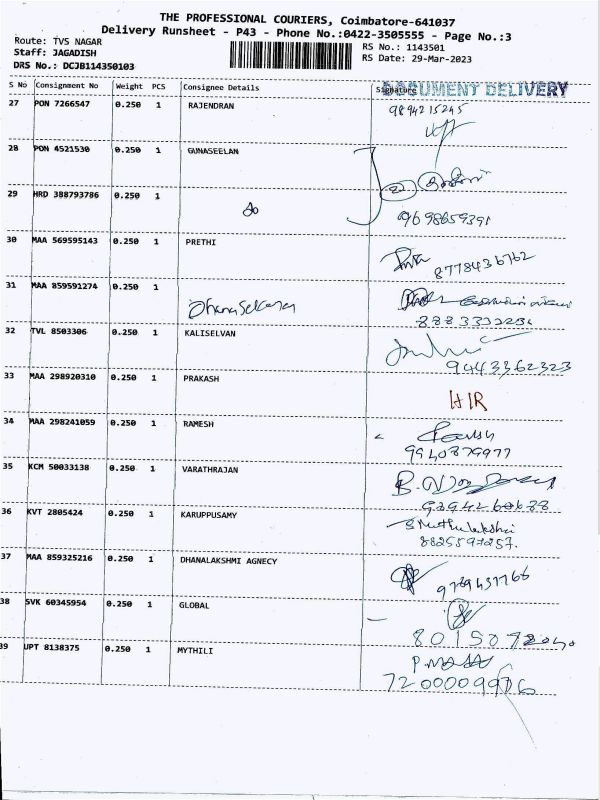 THE PROFESSIONAL COURIERS, Coimbatore-641037
Delivery Runsheet - P43 - Phone No.:0422-3505555 - Page No.:3
Route: TVS NAGAR
Staff: JAGADISH
DRS No.: DCJB114350103
RS No.: 1143501
RS Date: 29-Mar-2023
S No Consignment No Weight PCS Consignee Details Signature
DOCUMENT DELIVERY
27 PON 7266547 0.250 1 RAJENDRAN
9894215245
28 PON 4521530 0.250 1 GUNASEELAN
29 HRD 388793786 0.250 1
9698659391
30 MAA 569595143 0.250 1 PRETHI
8778436762
31 MAA 859591274 0.250 1 Dhanasekaran
32 TVL 8503306 0.250 1 KALISELVAN
9443362323
33 MAA 298920310 0.250 1 PRAKASH
H/R
34 MAA 298241059 0.250 1 RAMESH
9940879977
35 KCM 50033138 0.250 1 VARATHRAJAN
36 KVT 2805424 0.250 1 KARUPPUSAMY
S Muthulakshmi
8825597257.
37 MAA 859325216 0.250 1 DHANALAKSHMI AGNECY
9789437766
38 SVK 60345954 0.250 1 GLOBAL
39 UPT 8138375 0.250 1 MYTHILI